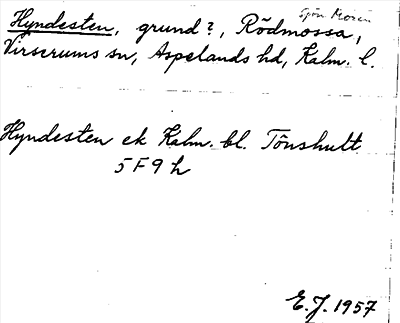 Sjön Mosen
Hyndesten, grund?, Rödmossa,
Virserums sn, Aspelands hd, Kalm. l.
Hyndesten ek Kalm. bl. Tönshult
5F9h
E.J. 1957